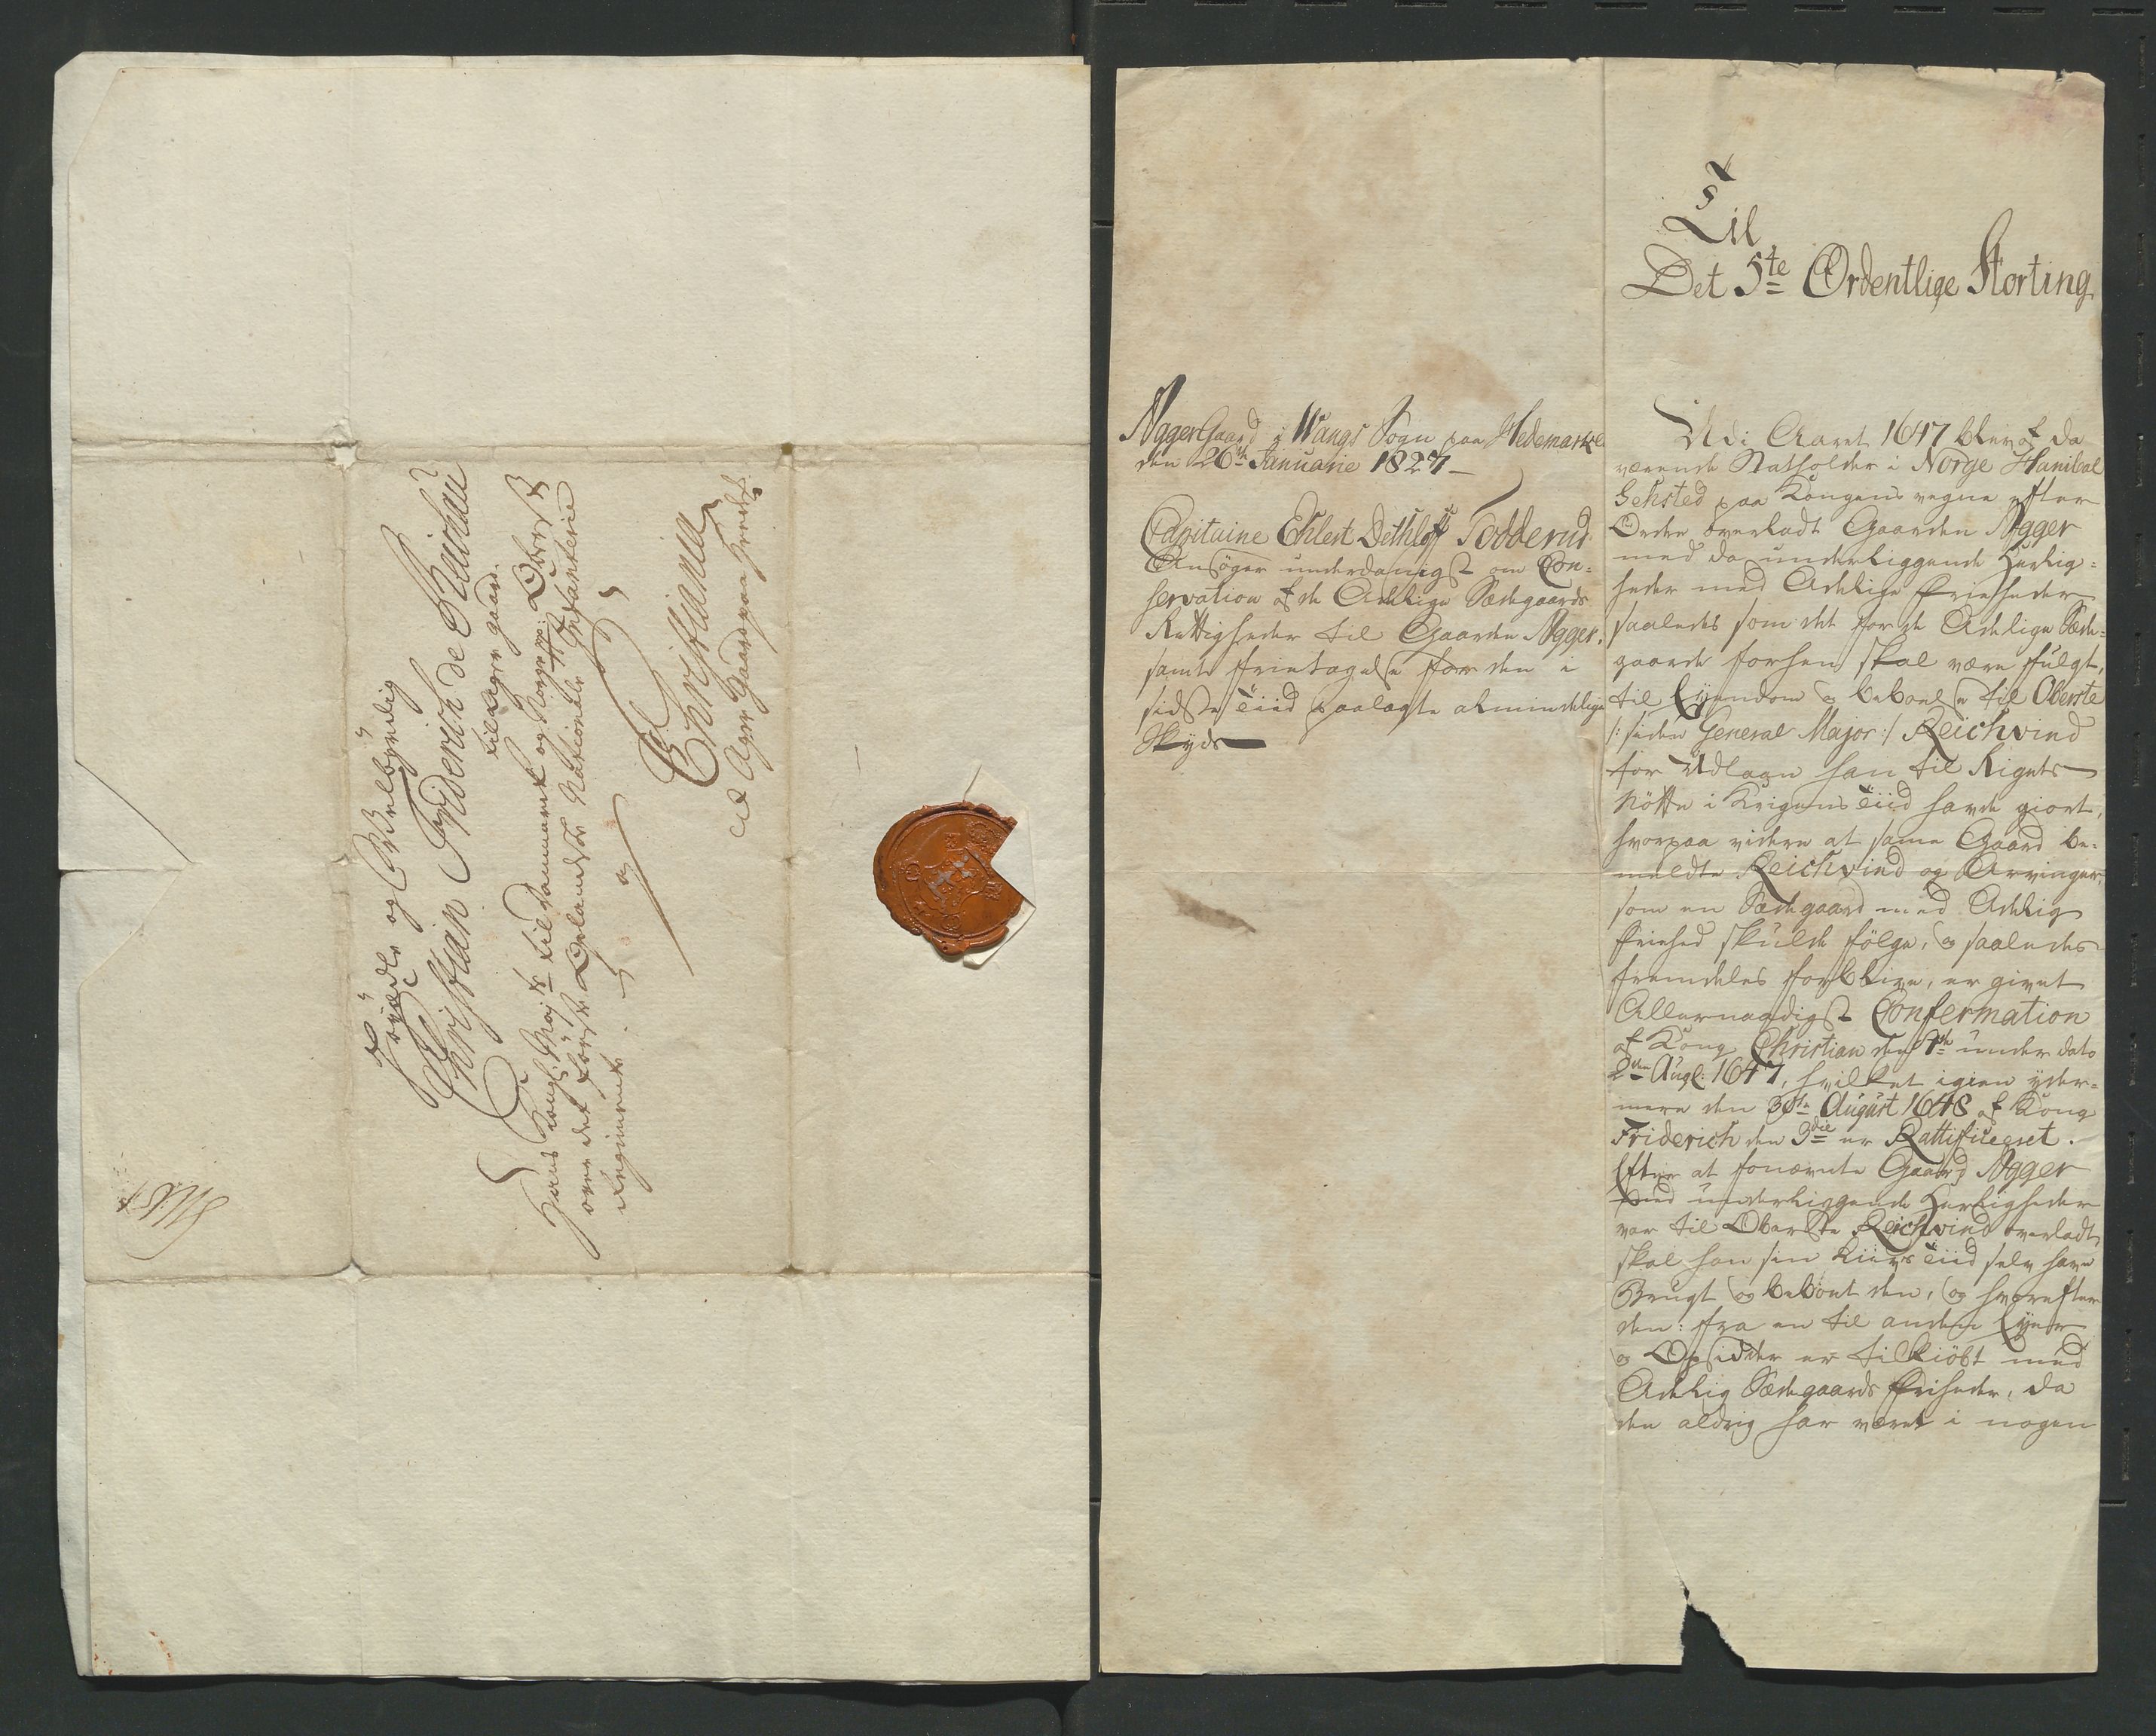 Höyædle og Welbyrdig
Christian Friderich de
til Ager gaard.
Hans Kongl: May.ts til Dannemark og Norge pp: Oberst
over det første Oplandske Nationale Infanterie
Regimente
a
Christiania
Ager Gaard paa Hedem.
Agger Gaard i Wangs Sogn paa Hedemarken
den 26de Januarie 1827 —
Capitaine Ehlert Dethloff Todderud
Ansøger underdanigst om Con-
servation af de Adelige Sædegaards
Rettigheder til Gaarden Agger,
samt frietagelse for den i
sidste Tiid paalagte almindelige
Skyds —
Til
Det 5te Ordentlige Storting
Udi Aaret 1647 blev af da
værende Statholder i Norge Hanibal
Sehsted paa Kongens vegne efter
Ordre overladt Gaarden Agger
med da underliggende Herlig-
heder med Adelige Friheder
saaledes som det for de Adelige Sæde-
gaarde forhen skal være fulgt,
til Eyendom og beboelse til Oberste
/: siden General Major :/ Reichvind
for Udlagn han til Rigets
Nötte i Krigens Tiid havde giort,
hvorpaa videre at samme Gaard be-
meldte Reichvind og Arvinger,
som en Sædegaard med Adelig
Friehed skulde fölge, og saaledes
fremdeles forblive, er givet
Allernaadigst Confermation
af Kong Christian den 4de under dato
2den Augs: 1647, hvilket igien yder-
mere den 30te August 1648 af Kong
Friderich den 3die er Rattificeret.
Efter at fonævnte Gaard Agger
med underliggende Herligheder
var til Oberste Reichvind overladt,
skal han sin Liivs Tiid selv have
Brugt og beboet den, og hvorefter
den: fra en til anden Eyer
og Opsidder er tilkiöbt med
Adelig Sædegaards Friheder, da
den aldrig har været i nogen